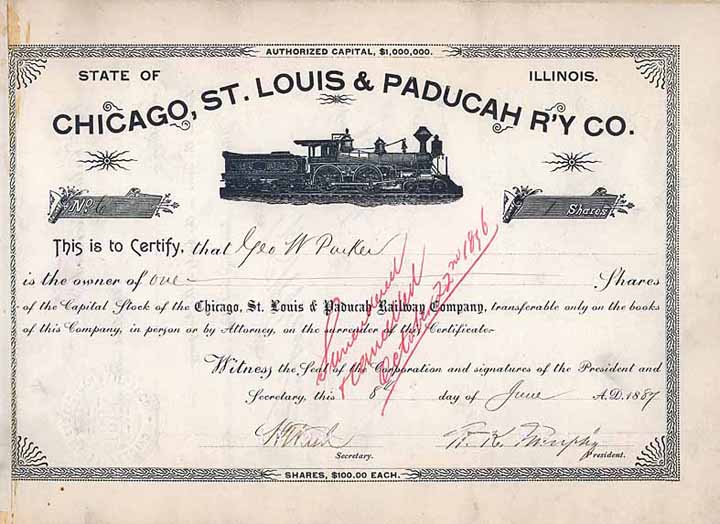 AUTHORIZED CAPITAL, $1,000,000.
STATE OF ILLINOIS.
CHICAGO, ST. LOUIS & PADUCAH R'Y CO.
No. 6
1 Shares
This is to Certify, that Geo W Parker
is the owner of one Shares
of the Capital Stock of the Chicago, St. Louis & Paducah Railway Company, transferable only on the books
of this Company, in person or by Attorney, on the surrender of this Certificate.
Surrendered
& Cancelled
October 22nd 1896
Witness the Seal of the Corporation and signatures of the President and
Secretary, this 8th day of June A.D. 1887
Secretary.
K. Murphy
President.
SHARES, $100.00 EACH.